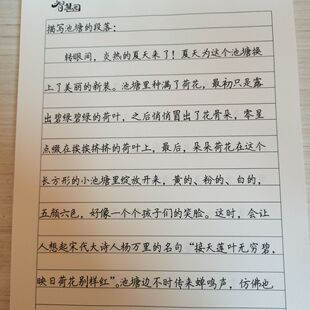 智慧园
描写池塘的段落：
转眼间，炎热的夏天来了！夏天为这个池塘换
上了美丽的新装。池塘里种满了荷花，最初只是露
出碧绿碧绿的荷叶，之后悄悄冒出了花骨朵，零星
点缀在挨挨挤挤的荷叶上，最后，朵朵荷花在这个
长方形的小池塘里绽放开来，黄的、粉的、白的，
五颜六色，好像一个个孩子们的笑脸。这时，会让
人想起宋代大诗人杨万里的名句“接天莲叶无穷碧，
映日荷花别样红”。池塘边不时传来蝉鸣声，仿佛也